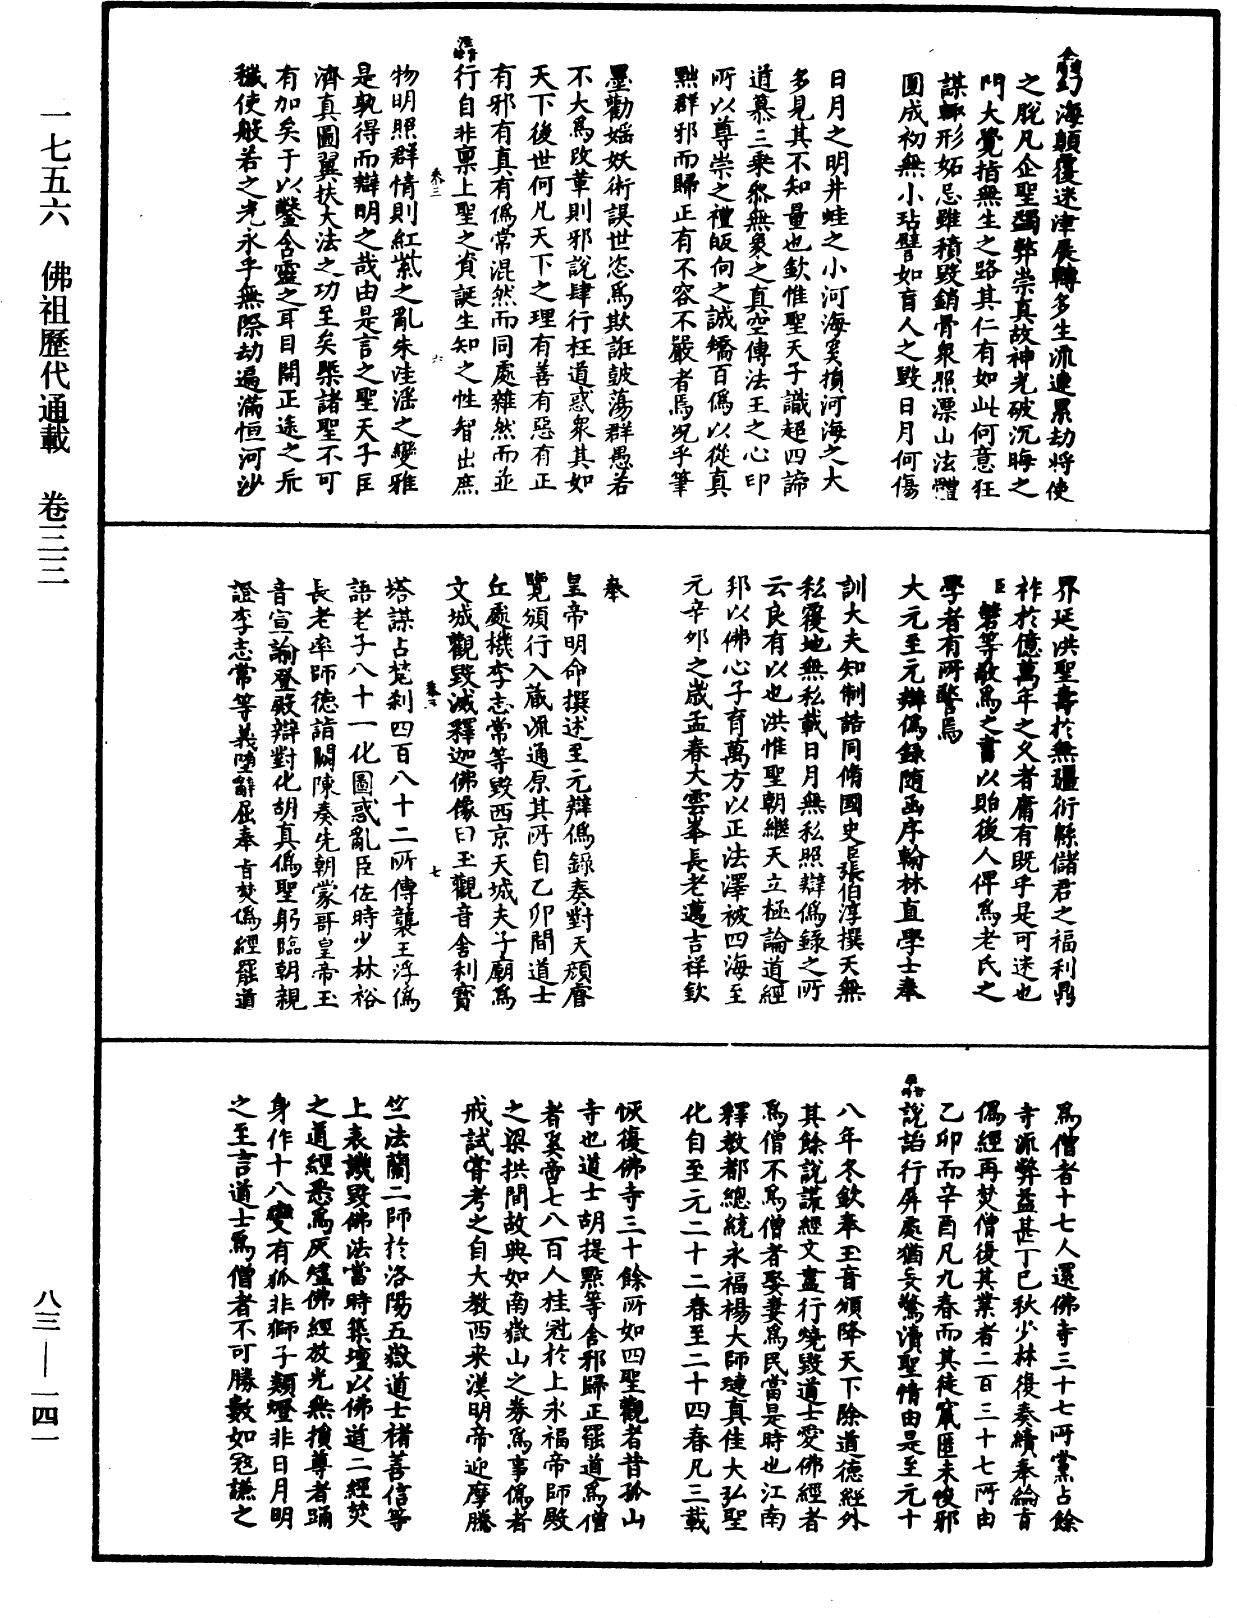 一七五六　佛祖歷代通載　卷三三
幻海顛覆迷津展轉多生流連累劫將使
之脫凡企聖蠲弊崇真故神光破沉晦之
門大覺指無生之路其仁有如此何意狂
謀輒形妬忌雖積毀銷骨衆煦漂山法體
圓成初無小玷譬如盲人之毀日月何傷
日月之明井蛙之小河海奚損河海之大
多見其不知量也欽惟聖天子識超四諦
道慕三乘黎無象之真空傳法王之心印
所以尊崇之禮皈向之誠矯百偽以從真
黜群邪而歸正有不容不嚴者焉況乎筆
墨勸婬妖術誤世恣為欺誑鼓蕩群愚若
不大為改革則邪說肆行枉道惑衆其如
天下後世何凡天下之理有善有惡有正
有邪有真有偽常混然而同處雜然而並
行自非稟上聖之資誕生知之性智出庶
卷三　六
物明照群情則紅紫之亂朱洼滛之變雅
是孰得而辯明之哉由是言之聖天子匡
濟真圖翼扶大法之功至矣槩諸聖不可
有加矣于以鑿含靈之耳目開正途之荒
穢使般若之光永乎無際劫遍滿恒河沙
界延洪聖壽於無疆衍緜儲君之福利鼎
祚於億萬年之久者庸有既乎是可述也
臣磐等敬為之書以貽後人俾為老氏之
學者有所警焉
大元至元辯偽錄隨函序翰林直學士奉
訓大夫知制誥同脩國史臣張伯淳撰天無
私覆地無私載日月無私照辯偽錄之所
云良有以也洪惟聖朝繼天立極論道經
邦以佛心子育萬方以正法澤被四海至
元辛卯之歲孟春大雲峯長老邁吉祥欽
奉
皇帝明命撰述至元辯偽錄奏對天顏睿
覽頒行入藏流通原其所自乙卯間道士
丘處機李志常等毀西京天城夫子廟為
文城觀毀滅釋迦佛像白玉觀音舍利寶
卷三　七
塔謀占梵剎四百八十二所傳襲王浮偽
語老子八十一化圖惑亂臣佐時少林裕
長老率師德詣闕陳奏先朝蒙哥皇帝玉
音宣諭登殿辯對化胡真偽聖躬臨朝親
證李志常等義墮辭屈奉旨焚偽經罷道
為僧者十七人還佛寺三十七所黨占餘
寺流弊益甚丁巳秋少林復奏續奉綸旨
偽經再焚僧復其業者二百三十七所由
乙卯而辛酉凡九春而其徒竄匿未悛邪
說諂行屏處猶妄驚瀆聖情由是至元十
八年冬欽奉玉音頒降天下除道德經外
其餘說謊經文盡行燒毀道士愛佛經者
為僧不為僧者娶妻為民當是時也江南
釋教都總統永福楊大師璉真佳大弘聖
化自至元二十二春至二十四春凡三載
恢復佛寺三十餘所如四聖觀者昔孤山
寺也道士胡提點等舍邪歸正罷道為僧
者奚啻七八百人挂冠於上永福帝師殿
之梁拱間故典如南嶽山之券為事偽者
戒試嘗考之自大教西來漢明帝迎摩騰
竺法蘭二師於洛陽五嶽道士褚善信等
上表譏毀佛法當時築壇以佛道二經焚
之道經悉為灰燼佛經放光無損尊者踊
身作十八變有狐非獅子類燈非日月明
之至言道士為僧者不可勝數如寇謙之
八三——一四一